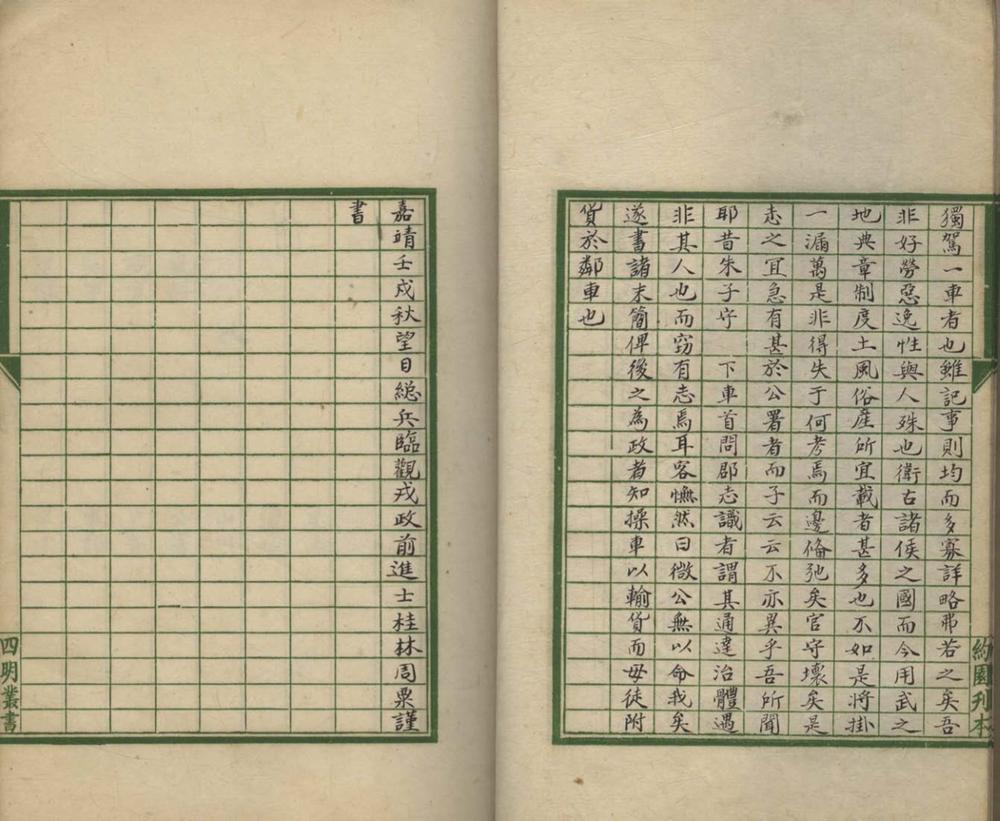 約園刊本
獨駕一車者也雖記事則均而多寡詳略弗若之矣吾
非好勞惡逸性與人殊也衛古諸侯之國而今用武之
地典章制度土風俗產所宜載者甚多也不如是將掛
一漏萬是非得失于何考焉而邊俻弛矣官守壞矣是
志之宜急有甚於公署者而子云云不亦異乎吾所聞
耶昔朱子守 下車首問郡志識者謂其通達治體遇
非其人也而窃有志焉耳客憮然曰微公無以命我矣
遂書諸末簡俾後之為政者知操車以輸貨而毋徒附
貨於鄰車也
嘉靖壬戍秋望日緫兵臨觀戎政前進士桂林周𥟖謹
書
四明叢書